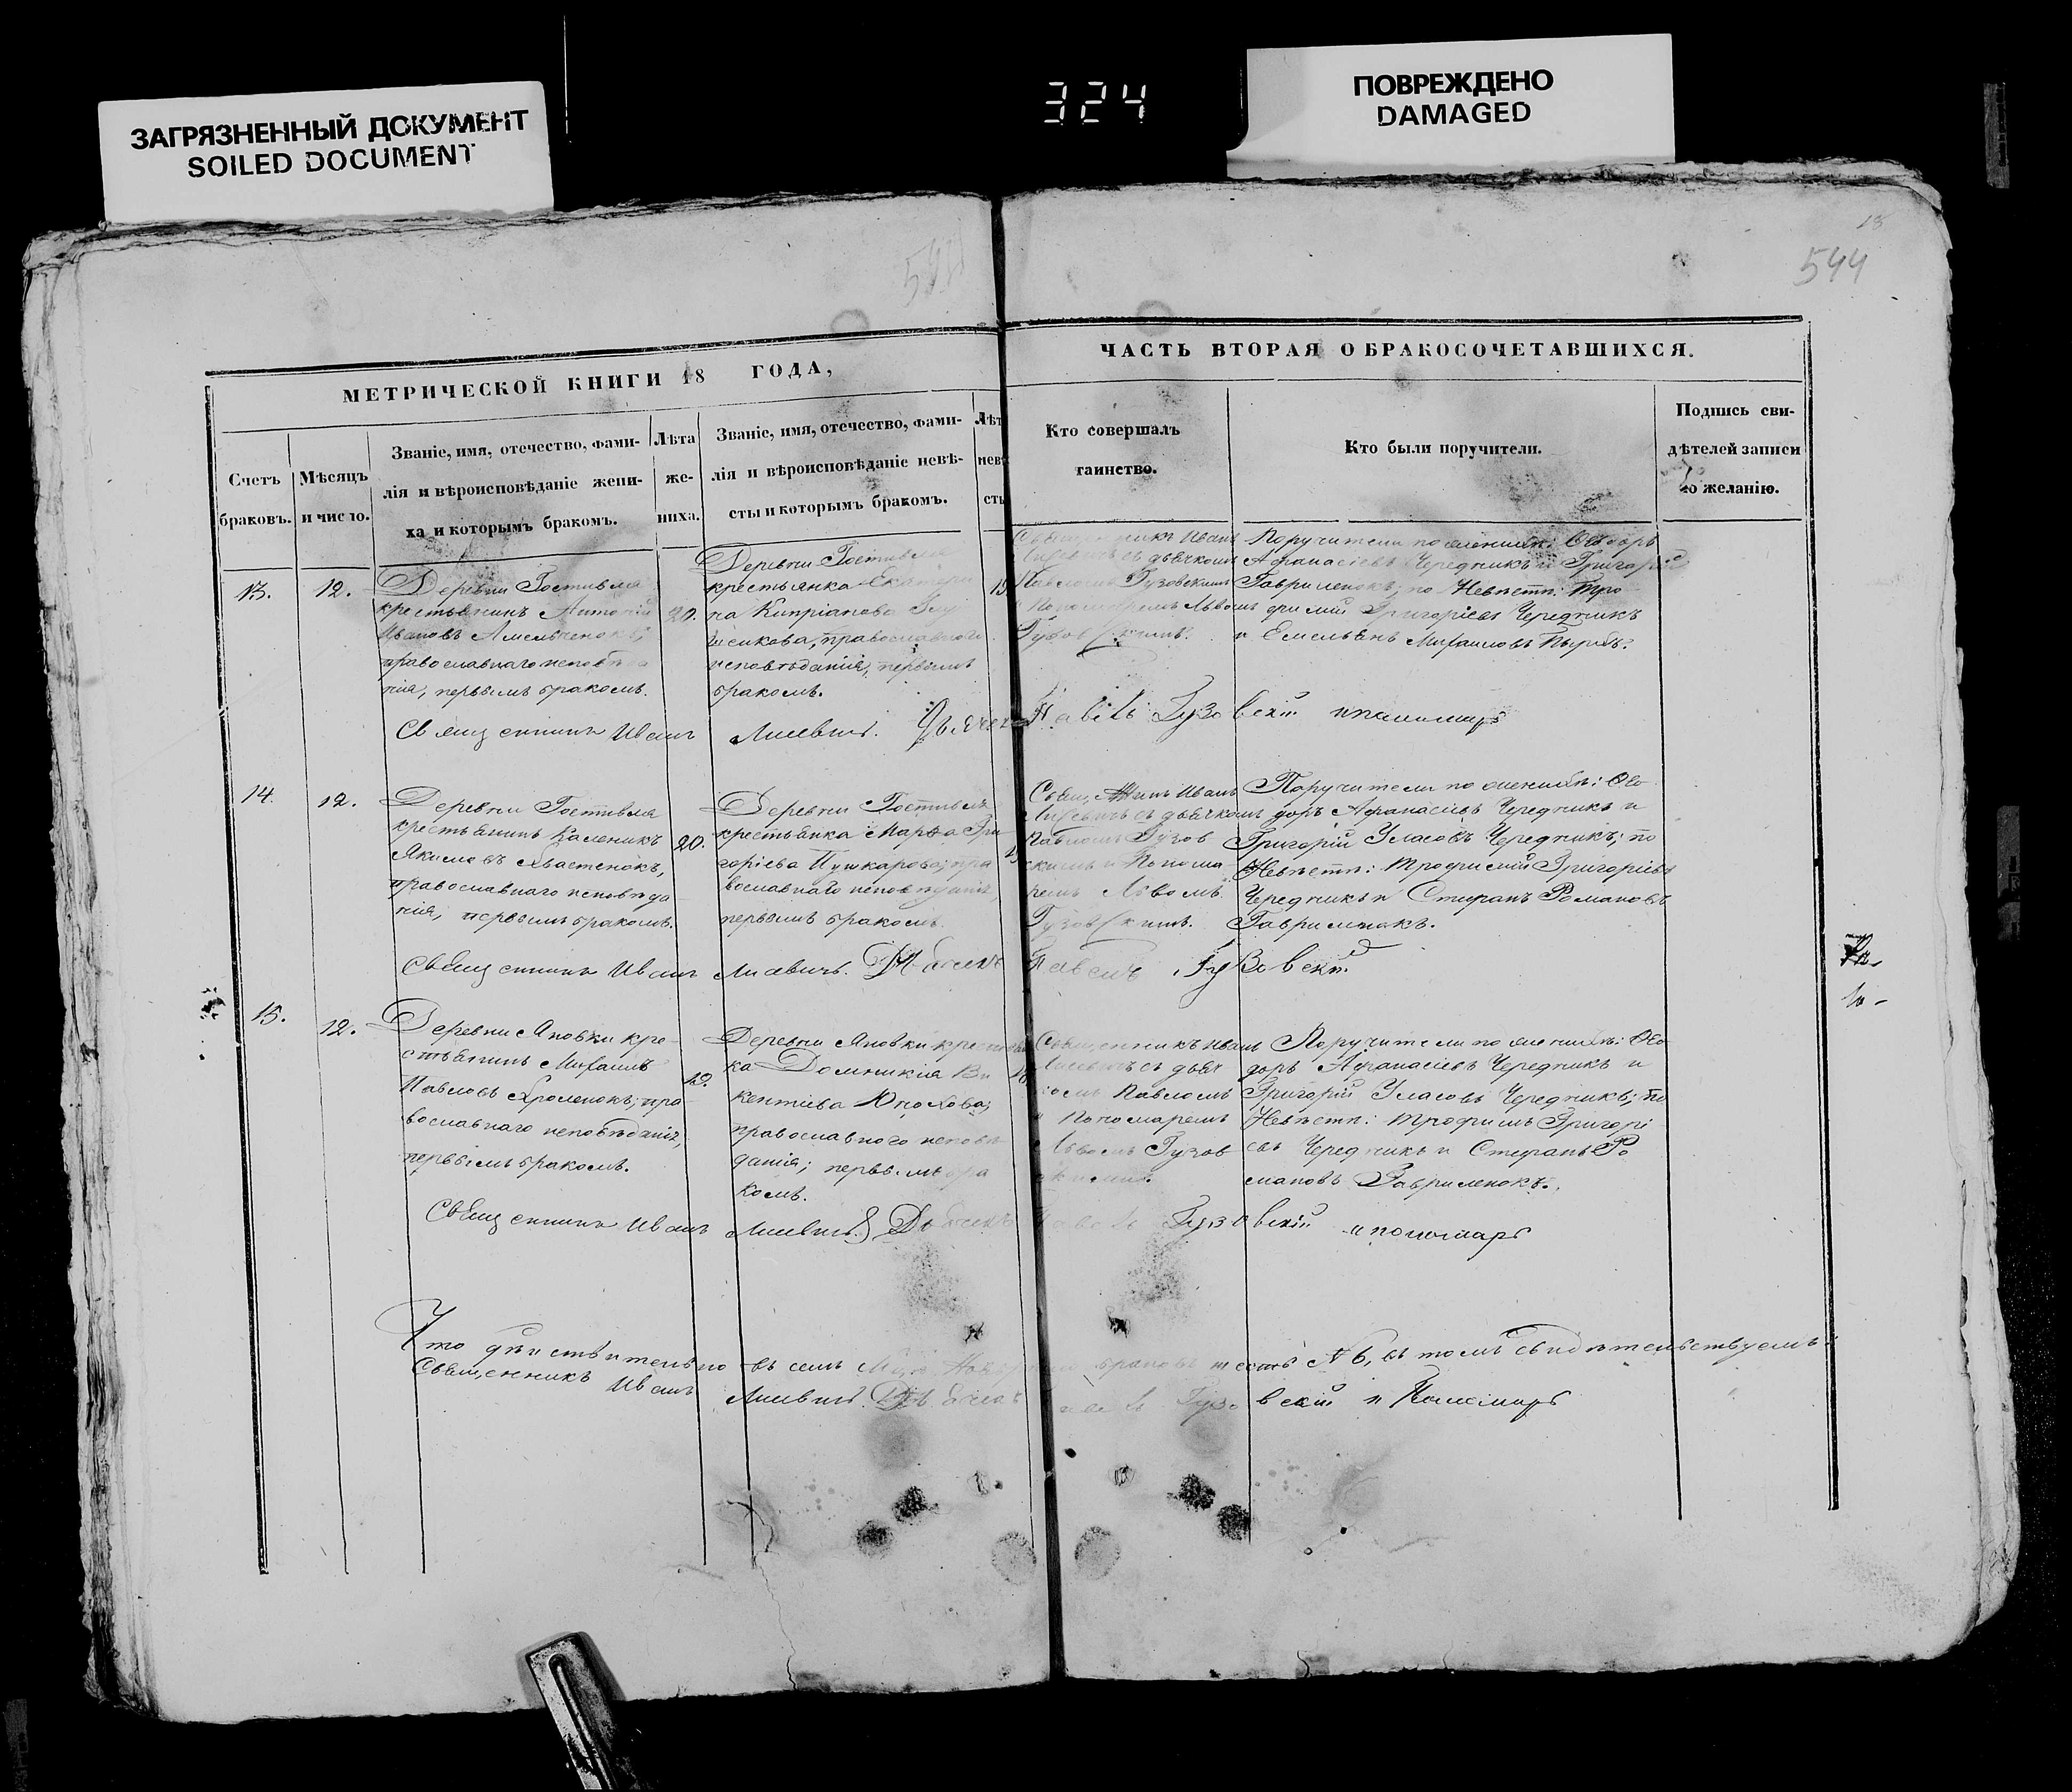 ЗАГРЯЗНЕННЫЙ ДОКУМЕНТ
SOILED DOCUMENT
324
ПОВРЕЖДЕНО
DAMAGED
18
544
МЕТРИЧЕСКОЙ КНИГИ 18 ГОДА,
ЧАСТЬ ВТОРАЯ О БРАКОСОЧЕТАВШИХСЯ.
Счетъ
браковъ.
Мѣсяцъ
и число.
Званіе, имя, отечество, фами-
лія и вѣроисповѣданіе жени-
ха и которымъ бракомъ.
Лѣта
же-
ниха.
Званіе, имя, отечество, фами-
лія и вѣроисповѣданіе невѣ-
сты и которымъ бракомъ.
Лѣт
нев
сты
Кто совершалъ
таинство.
Кто были поручители.
Подпись сви-
дѣтелей записи
по желанію.
13.
12.
Деревни Гостивля
крестьянинъ Антоній
Ивановъ Амельченокъ,
православнаго исповѣда
нія, первымъ бракомъ.
20.
Деревни Гостивля
крестьянка Екатери
на Кипріанова
православнаго
исповѣданія, первымъ
бракомъ.
19
Священникъ Иванъ
Лисевичъ съ дьячкомъ
Павломъ Гузовскимъ
и Пономаремъ Львомъ
Гузовскимъ.
Поручители по женихѣ: Ѳеодоръ
Афанасіевъ Чередникъ и Григорій
Гавриленокъ; по Невѣстѣ: Тро
фимъ Григоріевъ Чередникъ
и Емельянъ Михаиловъ
Священникъ Иванъ Лисевичъ. Дьячекъ Павелъ Гузовскій и пономарь
14.
12.
Деревни Гостивля
крестьянинъ Каленикъ
Якимовъ Хвастенокъ,
православнаго исповѣда
нія, первымъ бракомъ.
20.
Деревни Гостивля
крестьянка Марфа Гри
горіева Пушкарова; пра
вославнаго исповѣданія,
первымъ бракомъ.
Иванъ
Лисевичъ съ дьячкомъ
Павломъ Гузов
скимъ и Понома
ремъ Львомъ
Гузовскимъ.
Поручители по женихѣ: Ѳео
доръ Афанасіевъ Чередникъ и
Григорій Уласовъ Чередникъ; по
Невѣстѣ: Трофимъ Григоріевъ
Чередникъ и Стефанъ Романовъ
Гавриленокъ.
Священникъ Иванъ Лисевичъ. Дьячекъ Павелъ Гузовскій
15.
12.
Деревни Яновки кре
стьянинъ Михаилъ
Павловъ Хроленокъ; пра
вославнаго исповѣданія,
первымъ бракомъ.
19.
Деревни Яновки крестьян
ка Домникія Ви
кентіева Юпохова;
православного исповѣ
данія; первымъ бра
комъ.
Священникъ Иванъ
Лисевичъ съ дьяч
комъ Павломъ
и Пономаремъ
Львомъ Гузов
скимъ.
Поручители по женихѣ: Ѳео
доръ Афанасіевъ Чередникъ и
Григорій Уласовъ Чередникъ; по
Невѣстѣ: Трофимъ Григорі
евъ Чередникъ и Стефанъ Ро
мановъ Гавриленокъ.
Священникъ Иванъ Лисевичъ Дьячекъ Павелъ Гузовскій и пономарь
Что дѣйствительно въ семъ браковъ шесть №6, въ томъ свидѣтельствуемъ:
Священникъ Иванъ Лисевичъ Дьячекъ Павелъ Гузовскій и Пономарь